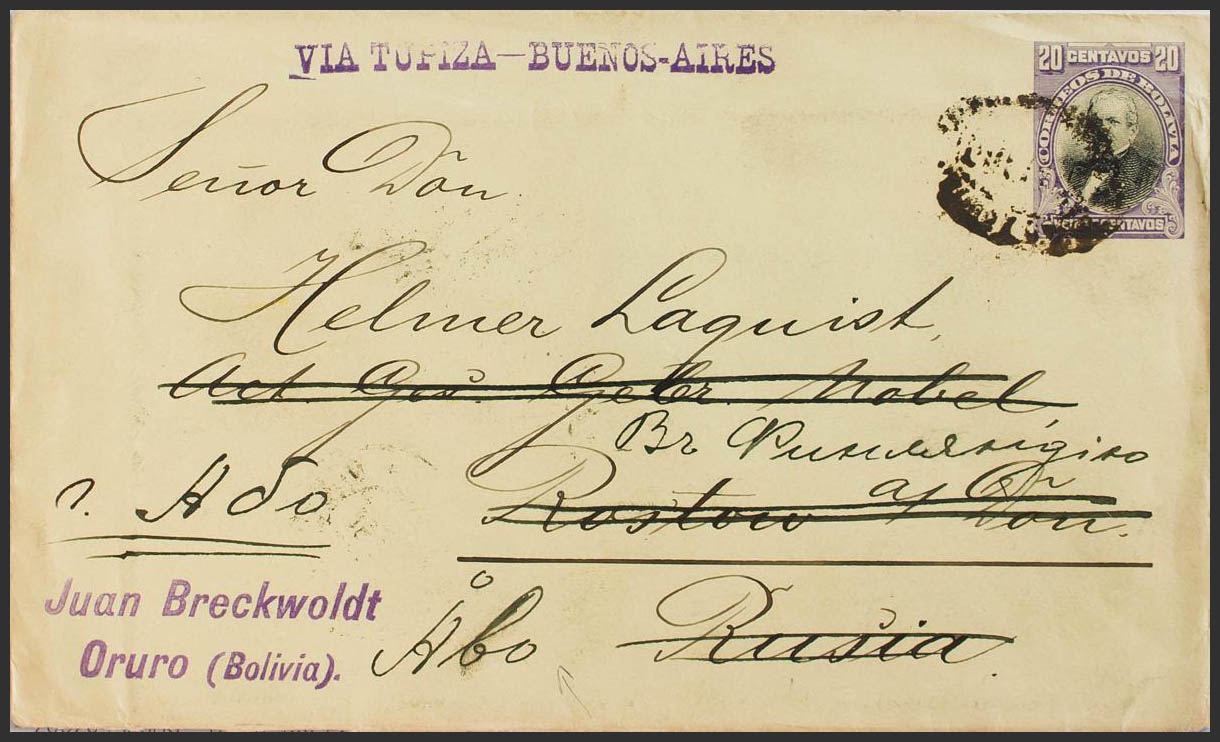 VIA TUPIZA—BUENOS-AIRES
20 CENTAVOS 20
CORREOS DE BOLIVIA
CENTAVOS
Señor Don
Helmer Laquist,
Act. Ges. Gebr. Nobel
Вг Финляндію
г. Або
Rostow a/ Don.
Juan Breckwoldt
Oruro (Bolivia).
Åbo
Rusia